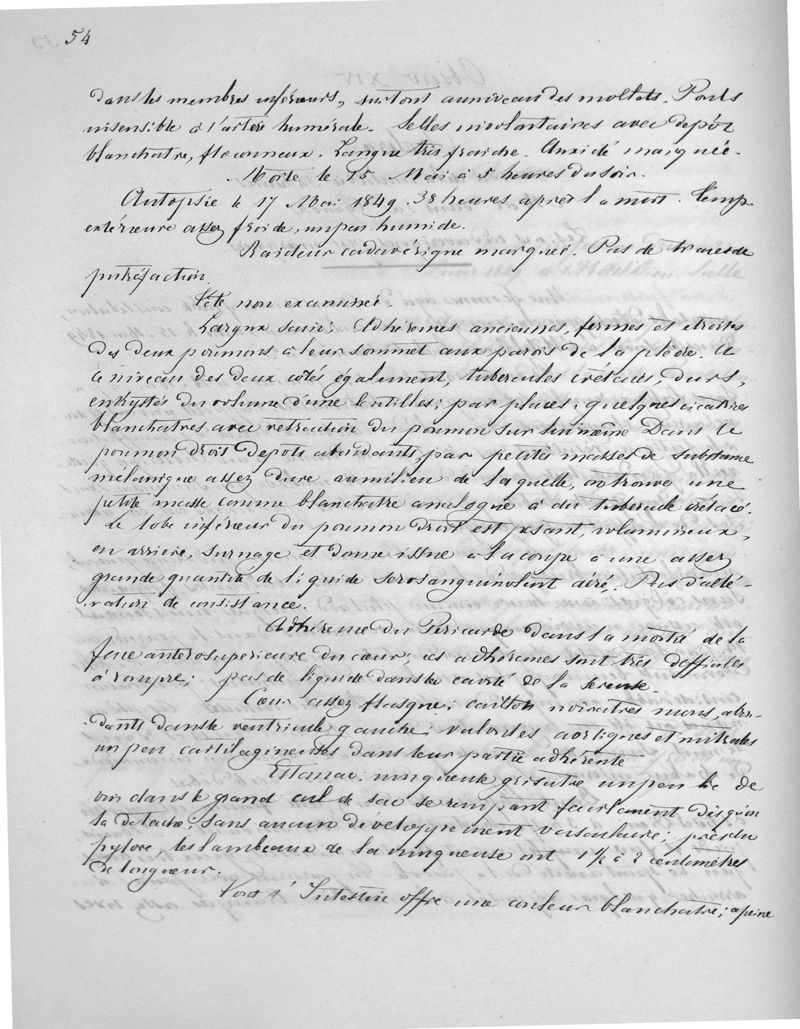 54
dans les membres inférieurs, surtout au niveau des mollets. Pouls
insensible à l'artère humérale. Selles involontaires avec dépôt
blanchatre, floconneux. Langue très fraiche. Anxiété marquée.
Morte le 15 Mai à 5 heures du soir.
Autopsie le 17 Mai 1849. 38 heures après la mort. Temp
extérieure assez froide, un peu humide.
Raideur cadavérique marquée. Pas de traces de
putréfaction.
Tête non examinée
Larynx sain; Adhérences anciennes, fermes et étroites
des deux poumons à leur sommet aux parois de la plèvre. A
ce niveau des deux côtés également, tubercules crétacés, durs,
enkystés du volume d'une lentilles; par places, quelques cicatrices
blanchatres avec rétraction du poumon sur lui même Dans le
poumon droit depots abondants, par petites masses de substance
mélanique assez dure au milieu de laquelle, on trouve une
petite masse comme blanchatre analogue à du tubercule crétacé.
Le lobe inférieur du poumon droit est pesant, volumineux,
en arrière, surnage et donne issue à la coupe à une assez
grande quantité de liquide serosanguinolent aéré. Pas d'alté-
ration de consistance.
Adhérence du Péricarde dans la moitié de la
face anterosuperieure du cœur; ces adhérences sont très difficiles
à rompre; pas de liquide dans la cavité de la séreuse.
Cœur assez flasque; caillots noiratres mous, abon-
dants dans le ventricule gauche; valvules aortiques et mitrales
un peu cartilagineuses dans leur partie adhérente
Estomac; muqueuse grisatre un peu lie de
vin dans le grand cul de sac se rompant facilement dès qu'on
la detache, sans aucun developpement vasculaire; près du
pylore, les lambeaux de la muqueuse ont 1 ½ à 2 centimètres
de longueur.
Tout l'Intestin offre une couleur blanchatre; a peine